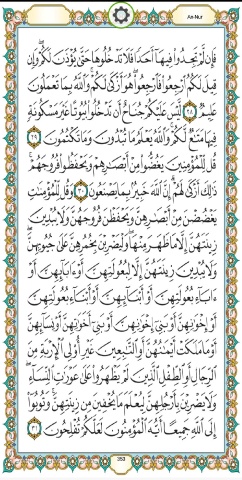 An-Nur
فَإِن لَّمْ تَجِدُوا۟ فِيهَآ أَحَدًا فَلَا تَدْخُلُوهَا حَتَّىٰ يُؤْذَنَ لَكُمْ ۖ وَإِن
قِيلَ لَكُمُ ٱرْجِعُوا۟ فَٱرْجِعُوا۟ ۖ هُوَ أَزْكَىٰ لَكُمْ ۚ وَٱللَّهُ بِمَا تَعْمَلُونَ
عَلِيمٌ ٢٨ لَّيْسَ عَلَيْكُمْ جُنَاحٌ أَن تَدْخُلُوا۟ بُيُوتًا غَيْرَ مَسْكُونَةٍ
فِيهَا مَتَٰعٌ لَّكُمْ ۚ وَٱللَّهُ يَعْلَمُ مَا تُبْدُونَ وَمَا تَكْتُمُونَ ٢٩
قُل لِّلْمُؤْمِنِينَ يَغُضُّوا۟ مِنْ أَبْصَٰرِهِمْ وَيَحْفَظُوا۟ فُرُوجَهُمْ ۚ
ذَٰلِكَ أَزْكَىٰ لَهُمْ ۗ إِنَّ ٱللَّهَ خَبِيرٌۢ بِمَا يَصْنَعُونَ ٣٠ وَقُل لِّلْمُؤْمِنَٰتِ
يَغْضُضْنَ مِنْ أَبْصَٰرِهِنَّ وَيَحْفَظْنَ فُرُوجَهُنَّ وَلَا يُبْدِينَ
زِينَتَهُنَّ إِلَّا مَا ظَهَرَ مِنْهَا ۖ وَلْيَضْرِبْنَ بِخُمُرِهِنَّ عَلَىٰ جُيُوبِهِنَّ ۖ
وَلَا يُبْدِينَ زِينَتَهُنَّ إِلَّا لِبُعُولَتِهِنَّ أَوْ ءَابَآئِهِنَّ أَوْ
ءَابَآءِ بُعُولَتِهِنَّ أَوْ أَبْنَآئِهِنَّ أَوْ أَبْنَآءِ بُعُولَتِهِنَّ
أَوْ إِخْوَٰنِهِنَّ أَوْ بَنِىٓ إِخْوَٰنِهِنَّ أَوْ بَنِىٓ أَخَوَٰتِهِنَّ أَوْ نِسَآئِهِنَّ
أَوْ مَا مَلَكَتْ أَيْمَٰنُهُنَّ أَوِ ٱلتَّٰبِعِينَ غَيْرِ أُو۟لِى ٱلْإِرْبَةِ مِنَ
ٱلرِّجَالِ أَوِ ٱلطِّفْلِ ٱلَّذِينَ لَمْ يَظْهَرُوا۟ عَلَىٰ عَوْرَٰتِ ٱلنِّسَآءِ ۖ
وَلَا يَضْرِبْنَ بِأَرْجُلِهِنَّ لِيُعْلَمَ مَا يُخْفِينَ مِن زِينَتِهِنَّ ۚ وَتُوبُوٓا۟
إِلَى ٱللَّهِ جَمِيعًا أَيُّهَ ٱلْمُؤْمِنُونَ لَعَلَّكُمْ تُفْلِحُونَ ٣١
353